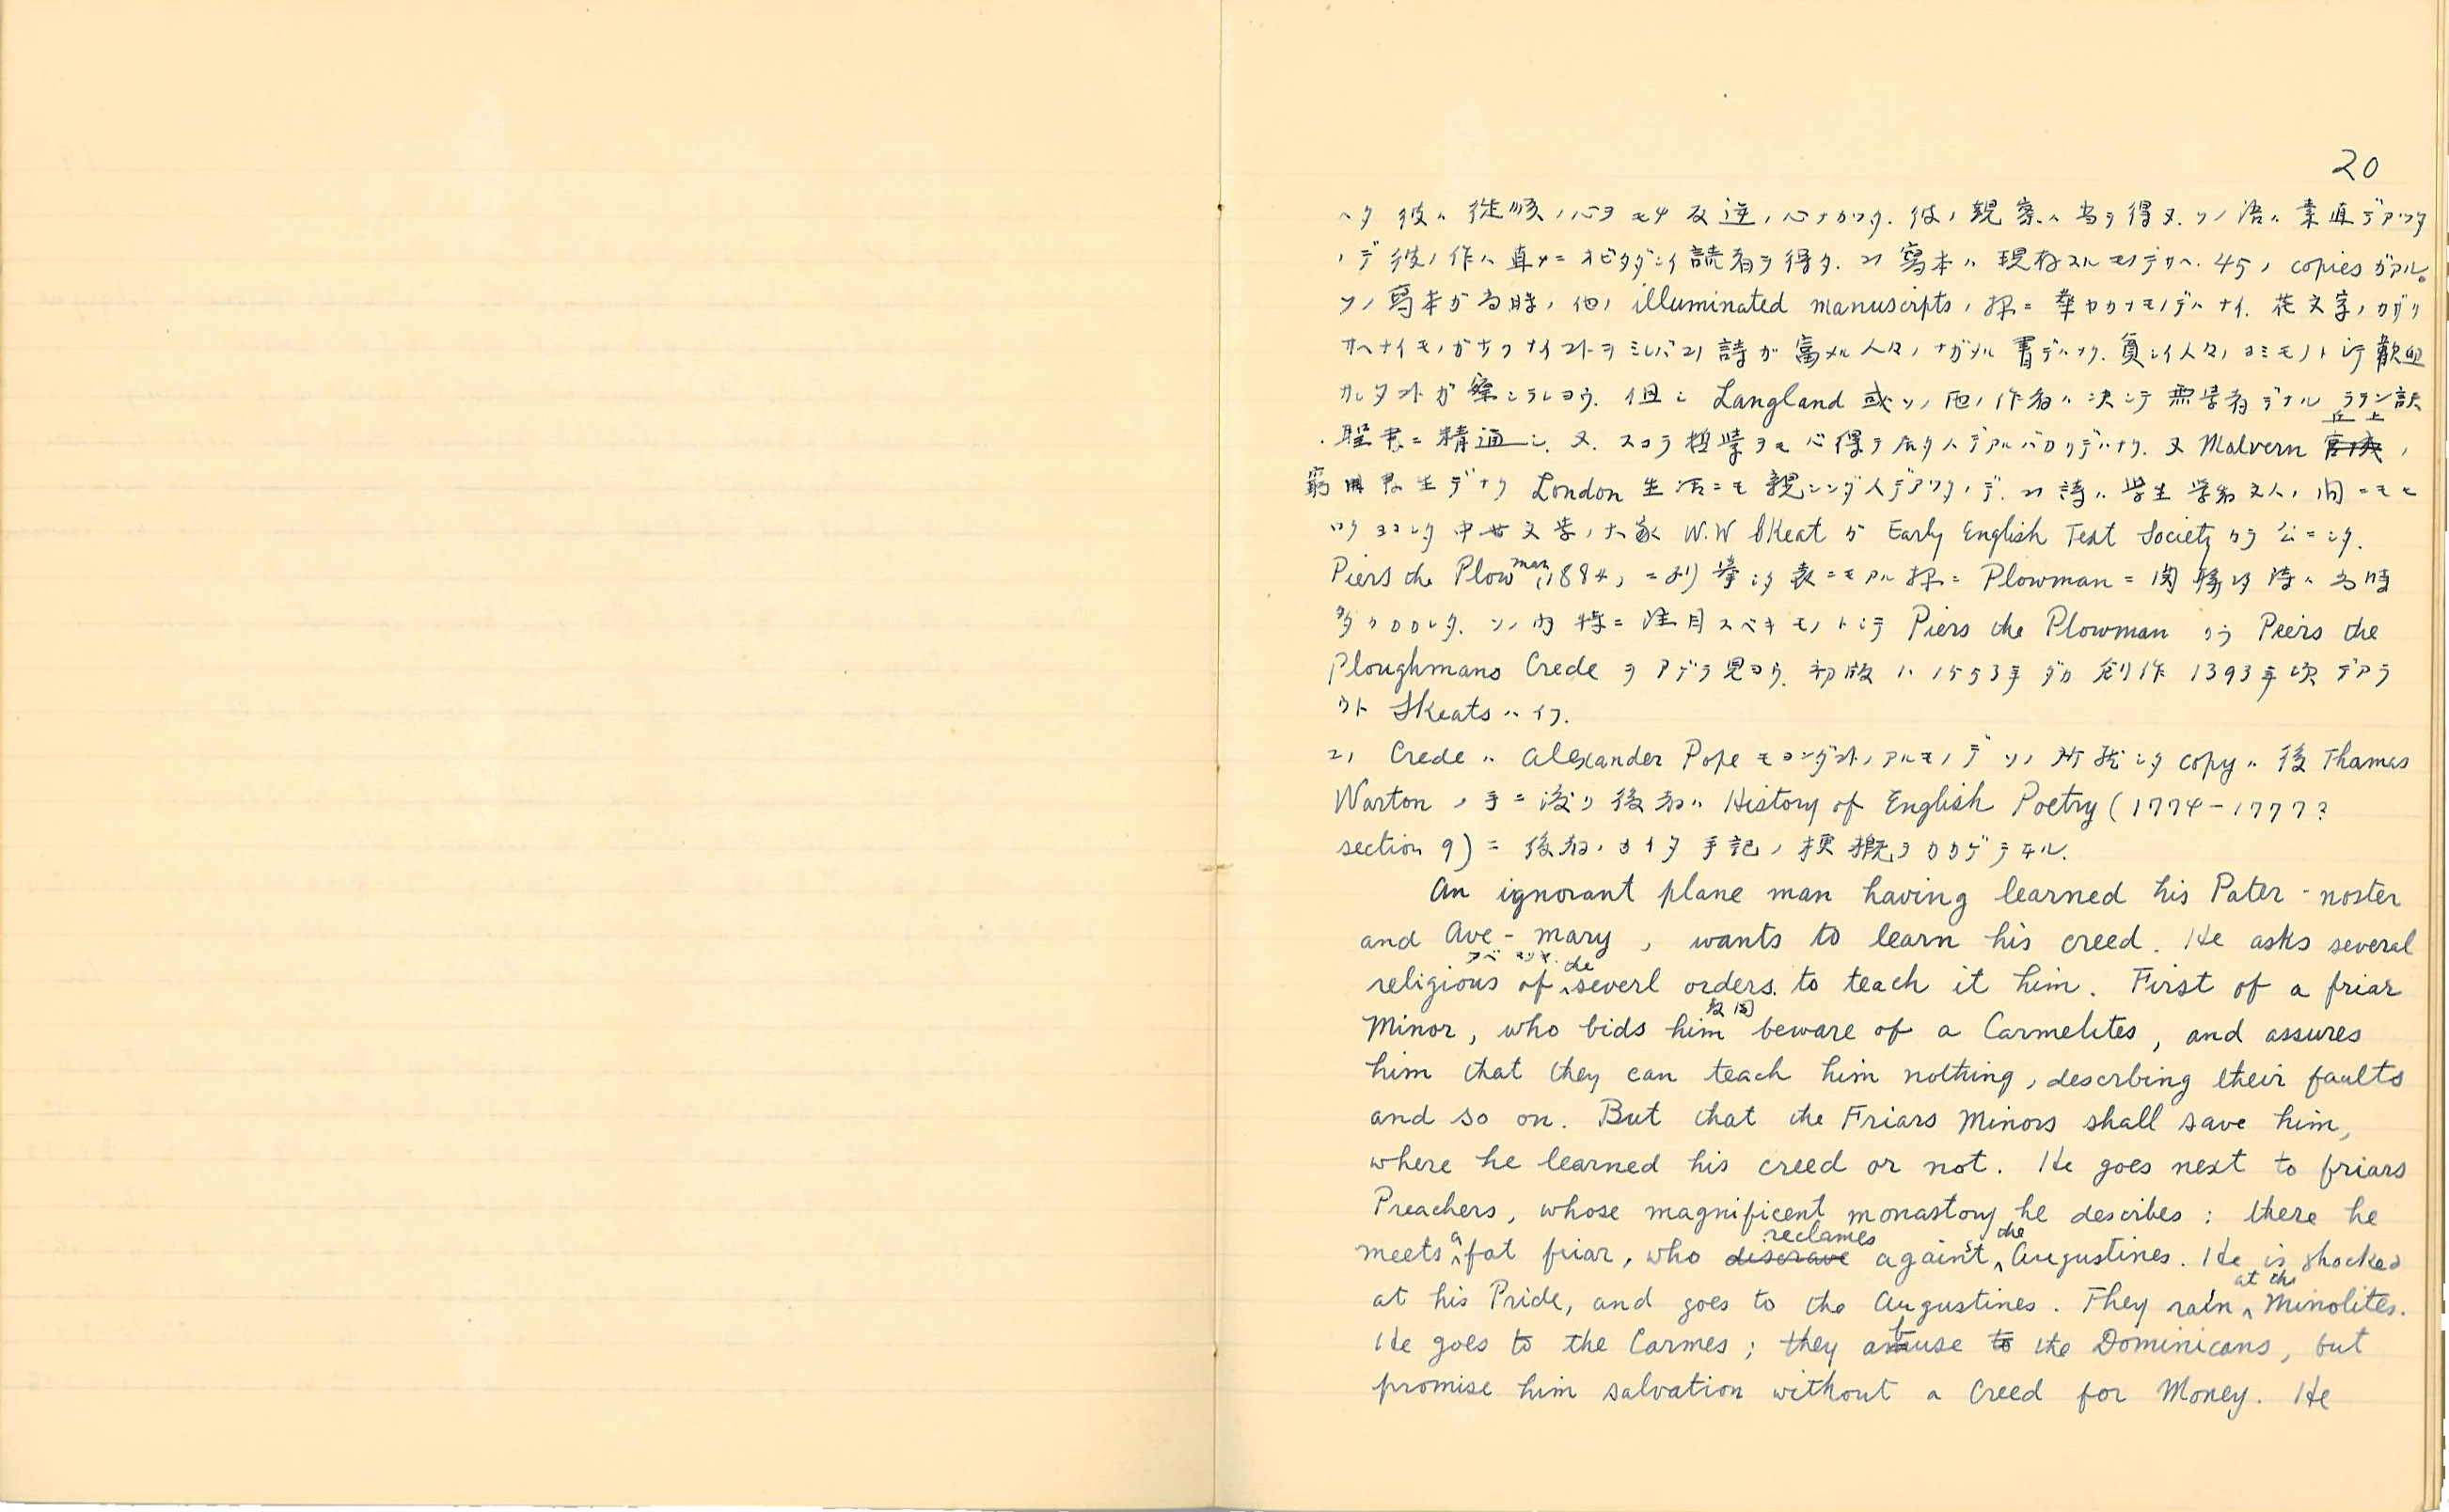 20
ヘタ 彼ハ 従順ノ心ヲモチ 反逆ノ心ナカツタ. 彼ノ観察ハ当ヲ得又ソノ語ハ素直デアツタ
ノデ彼ノ作ハ直チニオビタダシイ読者ヲ得タ. コノ寫本ハ現存スルモノデサヘ 45ノ copies ガアル。
ソノ寫本ガ当時ノ他ノ illuminated manuscripts ノ様ニ華ヤカナモノデハナイ. 花文字ノカザリ
サヘナイモノガ少クナイコトヲミレバコノ詩ガ富メル人々ノナガメル書デナク. 貧シイ人々ノヨミモノトシテ歓迎
サレタコトガ察シラレヨウ. 但シ Langland 或ソノ他ノ作者ハ決シテ無学者デナク ラテン訳
ノ聖書ニ精通シ. 又. スコラ哲学ヲモ心得テ居タ人デアルバカリデナク. 又 Malvern 丘上ノ
窮措書生デナク London 生活ニモ親シンダ人デアツタノデ. コノ詩ハ学生学者文人ノ間ニモヒ
ロクヨマレタ 中世文学ノ大家 W.W Skeat ガ Early English Text Society カラ公ニシタ.
Piers the Plowman (1884) ニ列挙シタ表ニモアル様ニ Plowman ニ関係スル詩ハ当時
多クカカレタ. ソノ内特ニ注目スベキモノトシテ Piers the Plowman カラ Peers the
Ploughmans Crede ヲアゲテ見ヨウ. 初版ハ 1553年ダガ創作 1393年頃デアラ
ウト Skeats ハイフ.
コノ Crede ハ Alexander Pope モヨンダコトノアルモノデソノ所蔵シタ copy ハ後 Thamas
Warton ノ手ニ渡リ後者ハ History of English Poetry (1774-1777?
section 9) ニ後者ノカイタ手記ノ梗概ヲカカゲテヰル.
An ignorant plane man having learned his Pater-noster
and Ave-mary, wants to learn his creed. He asks several
アベ マリヤ.
religious of the severl orders. to teach it him. First of a friar
Minor, who bids him beware of a Carmelites, and assures
him that they can teach him nothing, descrbing their faults
and so on. But that the Friars Minors shall save him,
where he learned his creed or not. He goes next to friars
Preachers, whose magnificent monastory he describes: there he
meets a fat friar, who reclames against the Augustines. He is shocked
at his Pride, and goes to the Augustines. They rain at the Minolites.
He goes to the Carmes; they abuse the Dominicans, but
promise him salvation without a Creed for Money. He